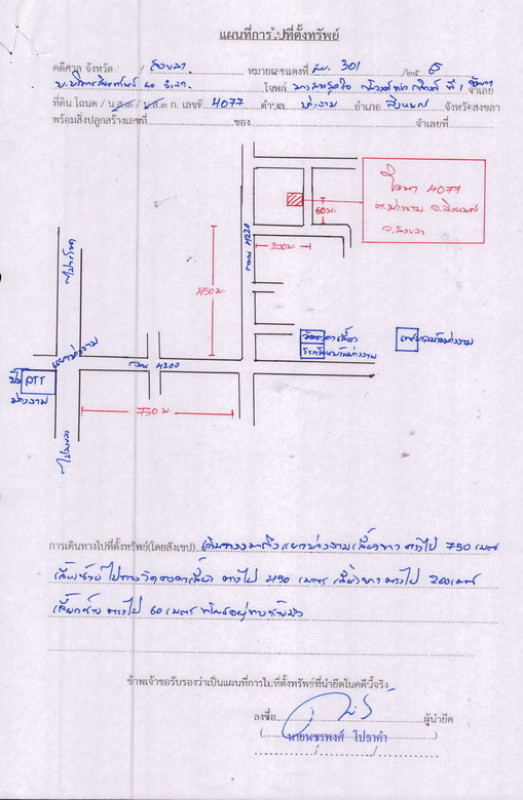 แผนที่การไปที่ตั้งทรัพย์
คดีศาล จังหวัด สงขลา หมายเลขแดงที่ ผบ. 301 /๒๕ 6
โจทก์ ที่ 1 จำเลย
ที่ดิน โฉนด / น.ส.๓ / น.ส.๓ ก. เลขที่ 4077 ตำบล ม่วงงาม อำเภอ สิงหนคร จังหวัดสงขลา
พร้อมสิ่งปลูกสร้างเลขที่ ของ จำเลยที่
โฉนด 4077
ต.ม่วงงาม อ.สิงหนคร
จ.สงขลา
60 ม.
200 ม.
ถนน 4220
450 ม.
ไประโนด
แยกม่วงงาม
วัด
โรงเรียนบ้านม่วงงาม
เทศบาลเมืองม่วงงาม
ถนน 4200
ปั๊ม PTT
ม่วงงาม
750 ม.
ไปสงขลา
การเดินทางไปที่ตั้งทรัพย์(โดยสังเขป) เดินทางมาถึงแยกม่วงงามเลี้ยวขวา ตรงไป 750 เมตร
เลี้ยวซ้าย ไปทางวัด ตรงไป 450 เมตร เลี้ยวขวา ตรงไป 200 เมตร
เลี้ยวซ้าย ตรงไป 60 เมตร ทรัพย์อยู่ทางซ้ายมือ
ข้าพเจ้าขอรับรองว่าเป็นแผนที่การไปที่ตั้งทรัพย์ที่นำยึดในคดีนี้จริง
ลงชื่อ ผู้นำยึด
( นายพชรพงศ์ โปราคำ )